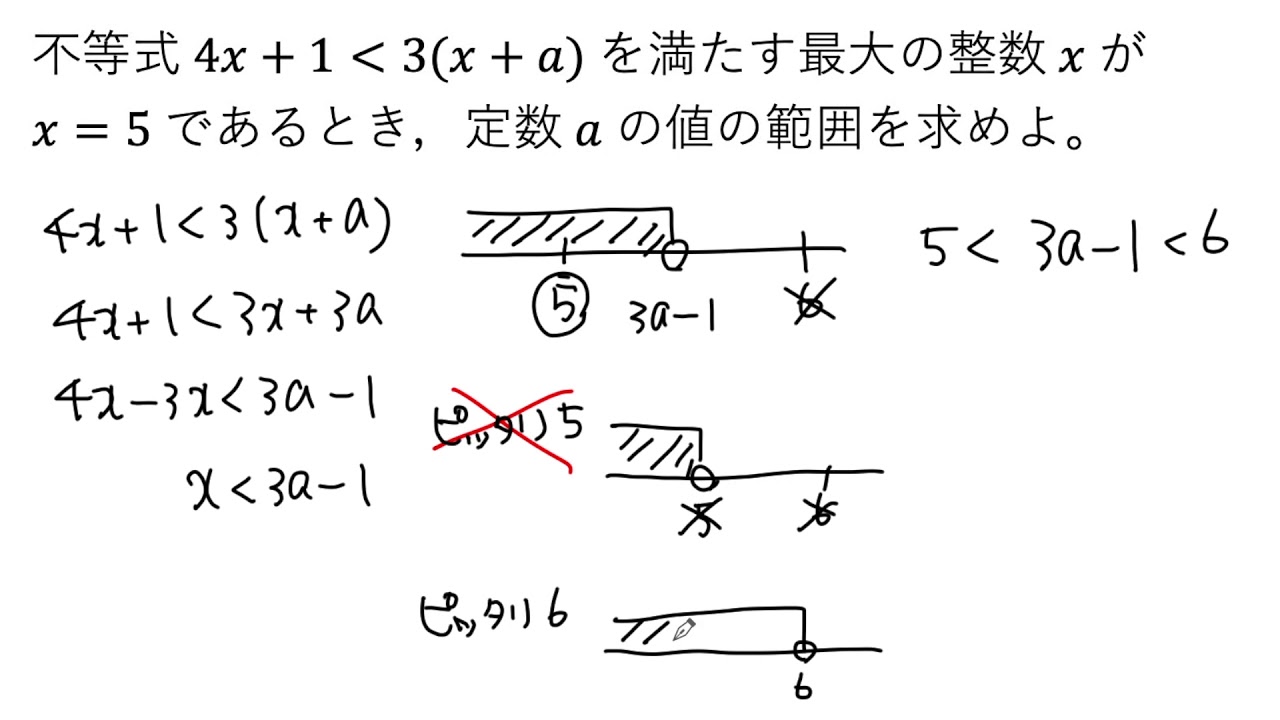 不等式 4x + 1 < 3(x + a) を満たす最大の整数 x が
x = 5 であるとき，定数 a の値の範囲を求めよ。
4x+1<3(x+a)
4x+1<3x+3a
4x-3x<3a-1
x<3a-1
5 3a-1 6
5< 3a-1 <6
ピッタリ5
5 6
ピッタリ6
6